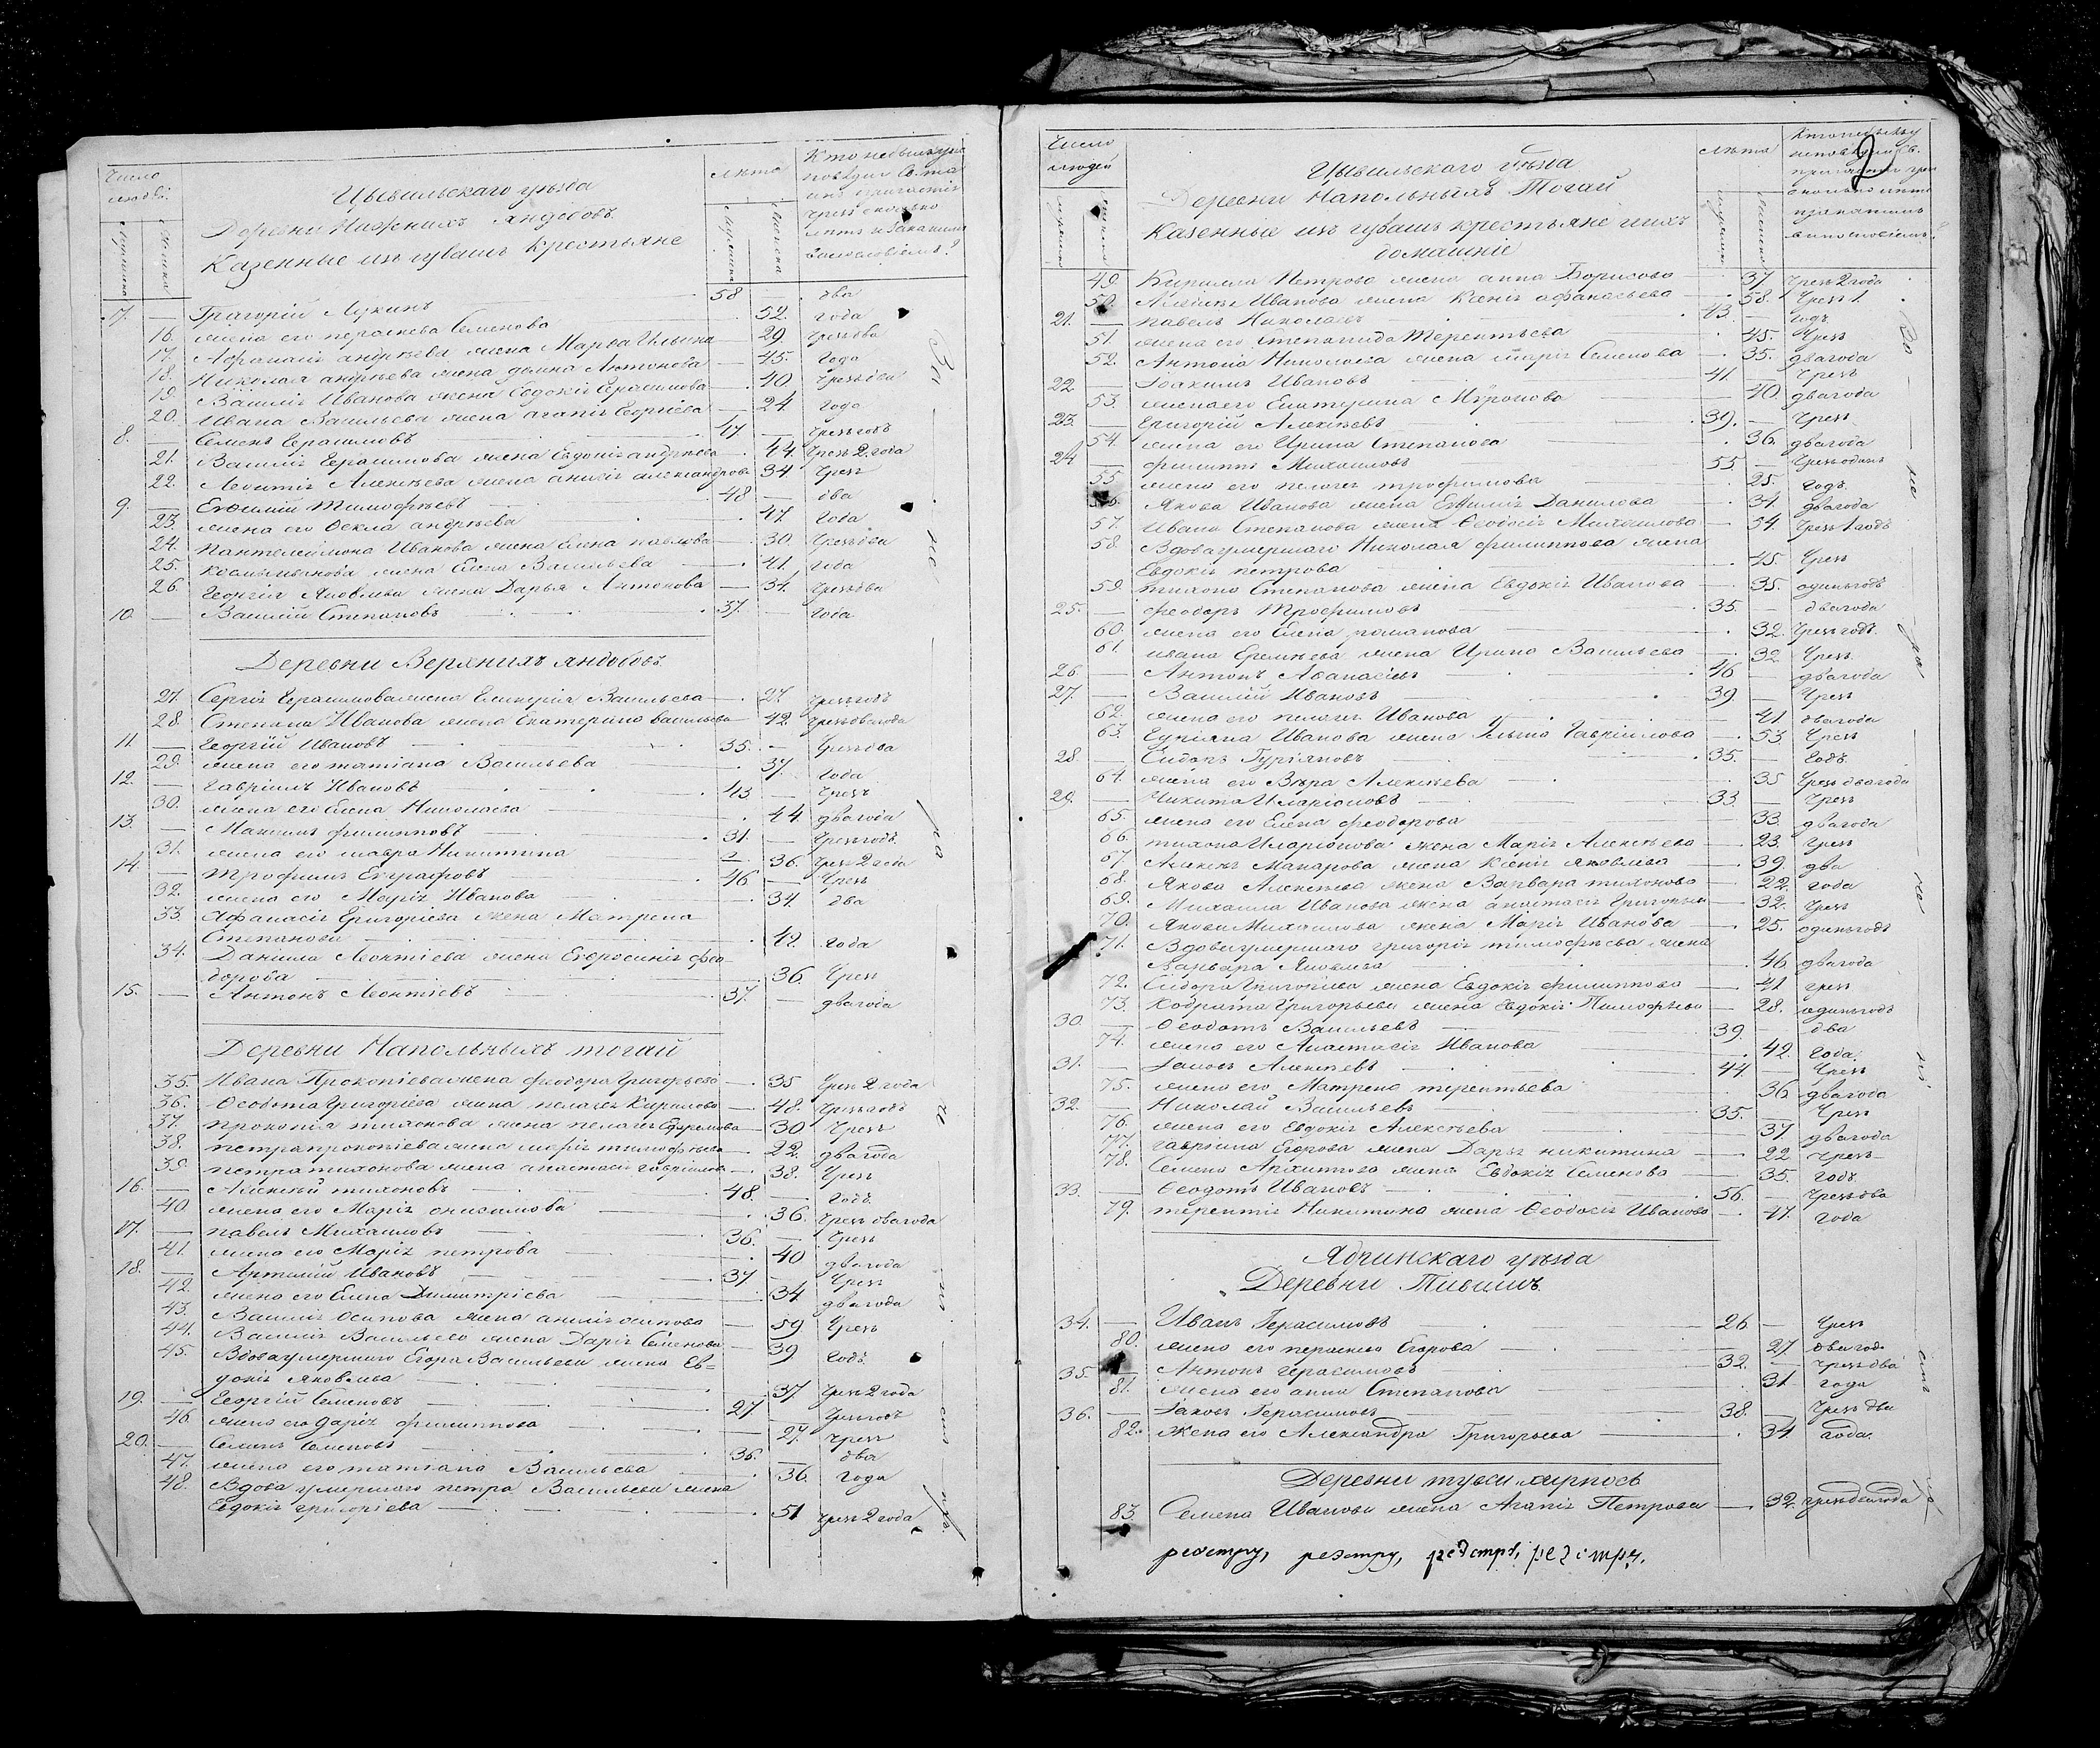 Число людей.
Цывильскаго уѣзда
Деревни Нижнихъ Яндобовъ.
Казенные изъ чувашъ крестьяне
лѣта
7. — Григорій Лукинъ 58 — два
16. жена его Семенова 52. года
17. Афанасія Андрѣева жена Марѳа Ильина 29. чрезъ два
18. Николая Андрѣева жена домна Антонова 45. года
19. Василія Иванова жена Евдокія Герасимова 40. чрезъ два
20. Ивана Васильева жена агапія Георгіева 24. года
8. — Семенъ Герасимовъ 47 — чрезъ годъ
21. Василія Герасимова жена Евдокія андрѣева 44. Чрезъ 2 года
22. Леонтія Алексѣева жена анисія александрова 34. Чрезъ
9. — Евѳимій Тимофѣевъ 48. — два
23. жена его Ѳекла андрѣева 47. года
24. Пантелеймона Иванова жена Елена павлова 30. Чрезъ два
25. жена Елена Васильева 41. года
26. Георгія Яковлева жена Дарья Антонова 34. Чрезъ два
10. — Василій Степановъ 37. — года
Деревни Верхнихъ яндобовъ.
27. Сергія Герасимова жена Васильева 27. чрезъ годъ
28. Степана Иванова жена Екатерина васильева 42. Чрезъ два года
11. — Георгій Ивановъ 35. — Чрезъ два
29. жена его татіана Васильева 37. года
12. — Гавріилъ Ивановъ 43 — Чрезъ
30. жена его Елена Николаева 44. два года
13. — Максимъ филипповъ 31. — Чрезъ годъ
31. жена его мавра Никитина 36. Чрезъ 2 года
14. — Трофимъ Евграфовъ 46 — Чрезъ
32. жена его Марія Иванова 34. два
33. Афанасія Григоріева жена Матрена
Степанова 42. года
34. Даніила Леонтіева жена Евфросинія фео-
дорова 36. Чрезъ
15. — Антонъ Леонтіевъ 37. — два года
Деревни Напольныхъ тогай
35. Ивана Прокопіева жена феодора Григорьева 35 Чрезъ 2 года
36. Ѳеодота Григоріева жена пелагея Кирилова 48. Чрезъ годъ
37. прокопія тихонова жена пелагея Ефремова 30 Чрезъ
38. петра прокопіева жена марія тимофѣева 22. два года
39. петра тихонова жена анастасія гаврилова 38. Чрезъ
16. — Алексѣй тихоновъ 48. — годъ.
40 жена его Марія онисимова 36. Чрезъ два года
17. — павелъ Михаиловъ 36. — Чрезъ
41. жена его Марія петрова 40 два года
18. — Ивановъ 37. — Чрезъ
42. жена его Елена Димитріева 34 два года
43. Василія Осипова жена осипова 59 Чрезъ
44. Василія Васильева жена Дарія Семенова 39 годъ.
45. Вдова умершаго Егора Васильева жена Ев-
докія Яковлева 37. Чрезъ 2 года
19. — Георгій Семеновъ 27 — Чрезъ годъ
46. жена его дарія филиппова 27. Чрезъ
20. — Семенъ Семеновъ 36. — два
47. жена его татіана Васильева 36. года
48. Вдова умершаго петра Васильева жена
Евдокія григоріева 51 чрезъ 2 года
Число людей
2
Цывильскаго уѣзда
Деревни Напольныхъ Тогай
Казенные изъ чувашъ крестьяне ихъ
домашніе
лѣта
49. Кирилла Петрова жена анна Борисова 37. Чрезъ 2 года
50. Алексѣя Иванова жена Ксенія афанасьева 58. Чрезъ 1.
21. — павелъ Николаевъ 43. — годъ.
51. жена его степанида Терентьева 45. Чрезъ
52. Антонія Николаева жена марія Семенова 35. два года
22. — Іоакимъ Ивановъ 41. — Чрезъ
53. жена его Екатерина Миронова 40. два года
23. — Григорій Алексѣевъ 39. — Чрезъ
54. жена его Ирина Степанова 36. два года
24 — филиппъ Михаиловъ 55. — Чрезъ одинъ
55 жена его пелагея трофимова 25. годъ.
56. Якова Иванова жена Евѳимія Данилова 34. два года
57. Ивана Степанова жена Ѳеодосія Михаилова 54. Чрезъ 1 годъ
58. Вдова умершаго Николая филиппова жена
Евдокія петрова 45. Чрезъ
59. тихона Степанова жена Евдокія Иванова 35. одинъ годъ
25. — феодоръ Трофимовъ 35. — два года
60. жена его Елена романова 32. Чрезъ годъ.
61. ивана Еремѣева жена Ирина Васильева 32 Чрезъ
26. — Антонъ Аѳанасіевъ 46 — два года
27. — Василій Ивановъ 39. — Чрезъ
62. жена его пелагея Иванова 41. два года
63. Иванова жена Гавріилова 53. Чрезъ
28. — Сидоръ Гуріяновъ 35. — Годъ
64. жена его Вѣра Алексѣева 35 Чрезъ два года
29. — Никита Иларіоновъ 33. — Чрезъ
65. жена его Елена феодорова 33. два года
66. тихона Иларіонова жена Марія Алексѣева 23. Чрезъ
67. Макарова жена Ксенія яковлева 39. два
68. Якова Алексѣева жена Варвара тихонова 22. года
69. Михаила Иванова жена анастасія Григорьева 32. Чрезъ
70. Якова Михаилова жена Марія Иванова 25. одинъ годъ
71. Вдова умершаго григорія тимофѣева жена
Варвара Яковлева 46. два года
72. Сидора Григоріева жена Евдокія филиппова 41 чрезъ
73. Кодрата Григорьева жена Евдокія Тимофѣева 28. одинъ годъ
30. — Ѳеодотъ Васильевъ 39. — два
74. жена его Анастасія Иванова 42. года.
31. — Іаковъ Алексѣевъ 44. — Чрезъ
75. жена его Матрена терентьева 36 два года
32. — Николай Васильевъ 35. — Чрезъ
76. жена его Евдокія Алексѣева 37. два года
77. гавріила Егорова жена Дарья никитина 22 Чрезъ
78. Семена Архипова жена Евдокія Семенова 35. годъ.
33. — Ѳеодотъ Ивановъ 56. — Чрезъ два
79. терентія Никитина жена Ѳеодосія Иванова 47. года
Ядринскаго уѣзда
Деревни
34. — Иванъ Герасимовъ 26. — Чрезъ
80. жена его Егорова 27 два год.
35. — Антонъ Герасимовъ 32. — Чрезъ два
81. жена его анна Степанова 31. года
36. — Іаковъ Герасимовъ 38. — Чрезъ два
82. жена его Александра Григорьева 34 года.
Деревни
83. Семена Иванова жена Агапія Петрова 32. чрезъ два года
реэстру, реэстру, реэстру, реэстру.